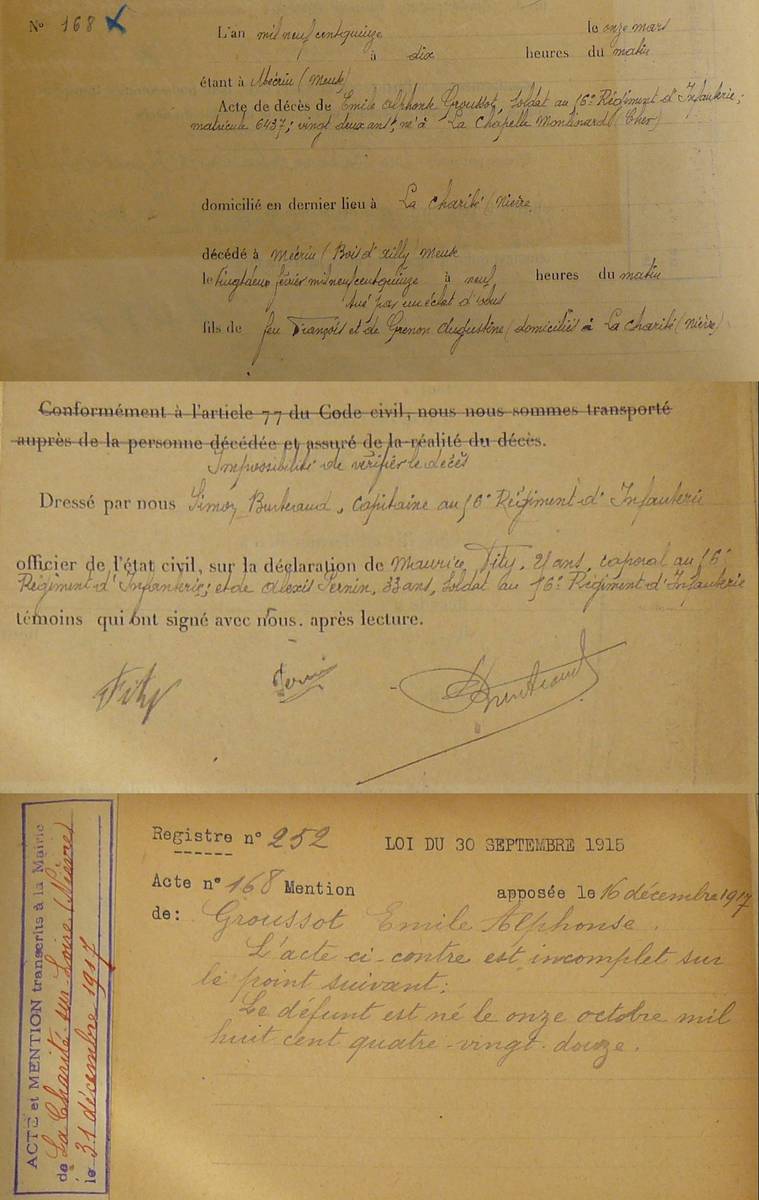 N° 168 X
L'an mil neuf cent quinze le onze mars
à dix heures du matin
étant à Mécrin (Meuse)
Acte de décès de Emile Alphonse Groussot, soldat au 56e Régiment d'Infanterie;
matricule 6437; vingt deux ans; né à La Chapelle Montlinard (Cher)
domicilié en dernier lieu à La Charité (Nièvre)
décédé à Mécrin (Bois d'Ailly) Meuse
le vingt deux février mil neuf cent quinze à neuf heures du matin
tué par un éclat d'obus
fils de feu François et de Grenon Augustine (domiciliés à La Charité (Nièvre)
Conformément à l'article 77 du Code civil, nous nous sommes transporté
auprès de la personne décédée et assuré de la réalité du décès.
Impossibilité de vérifier le décès
Dressé par nous Simon, Capitaine au 56e Régiment d'Infanterie
officier de l'état civil, sur la déclaration de Maurice Fity, 21 ans, caporal au 56e
Régiment d'Infanterie; et de Alexis Pernin, 33 ans, soldat au 56e Régiment d'Infanterie
témoins qui ont signé avec nous. après lecture.
Fity Pernin
ACTE et MENTION transcrits à la Mairie
de La Charité-sur-Loire (Nièvre)
le 31 décembre 1917
Registre n° 252 LOI DU 30 SEPTEMBRE 1915
Acte n° 168 Mention apposée le 16 décembre 1917
de: Groussot Emile Alphonse.
L'acte ci-contre est incomplet sur
le point suivant:
Le défunt est né le onze octobre mil
huit cent quatre-vingt-douze.